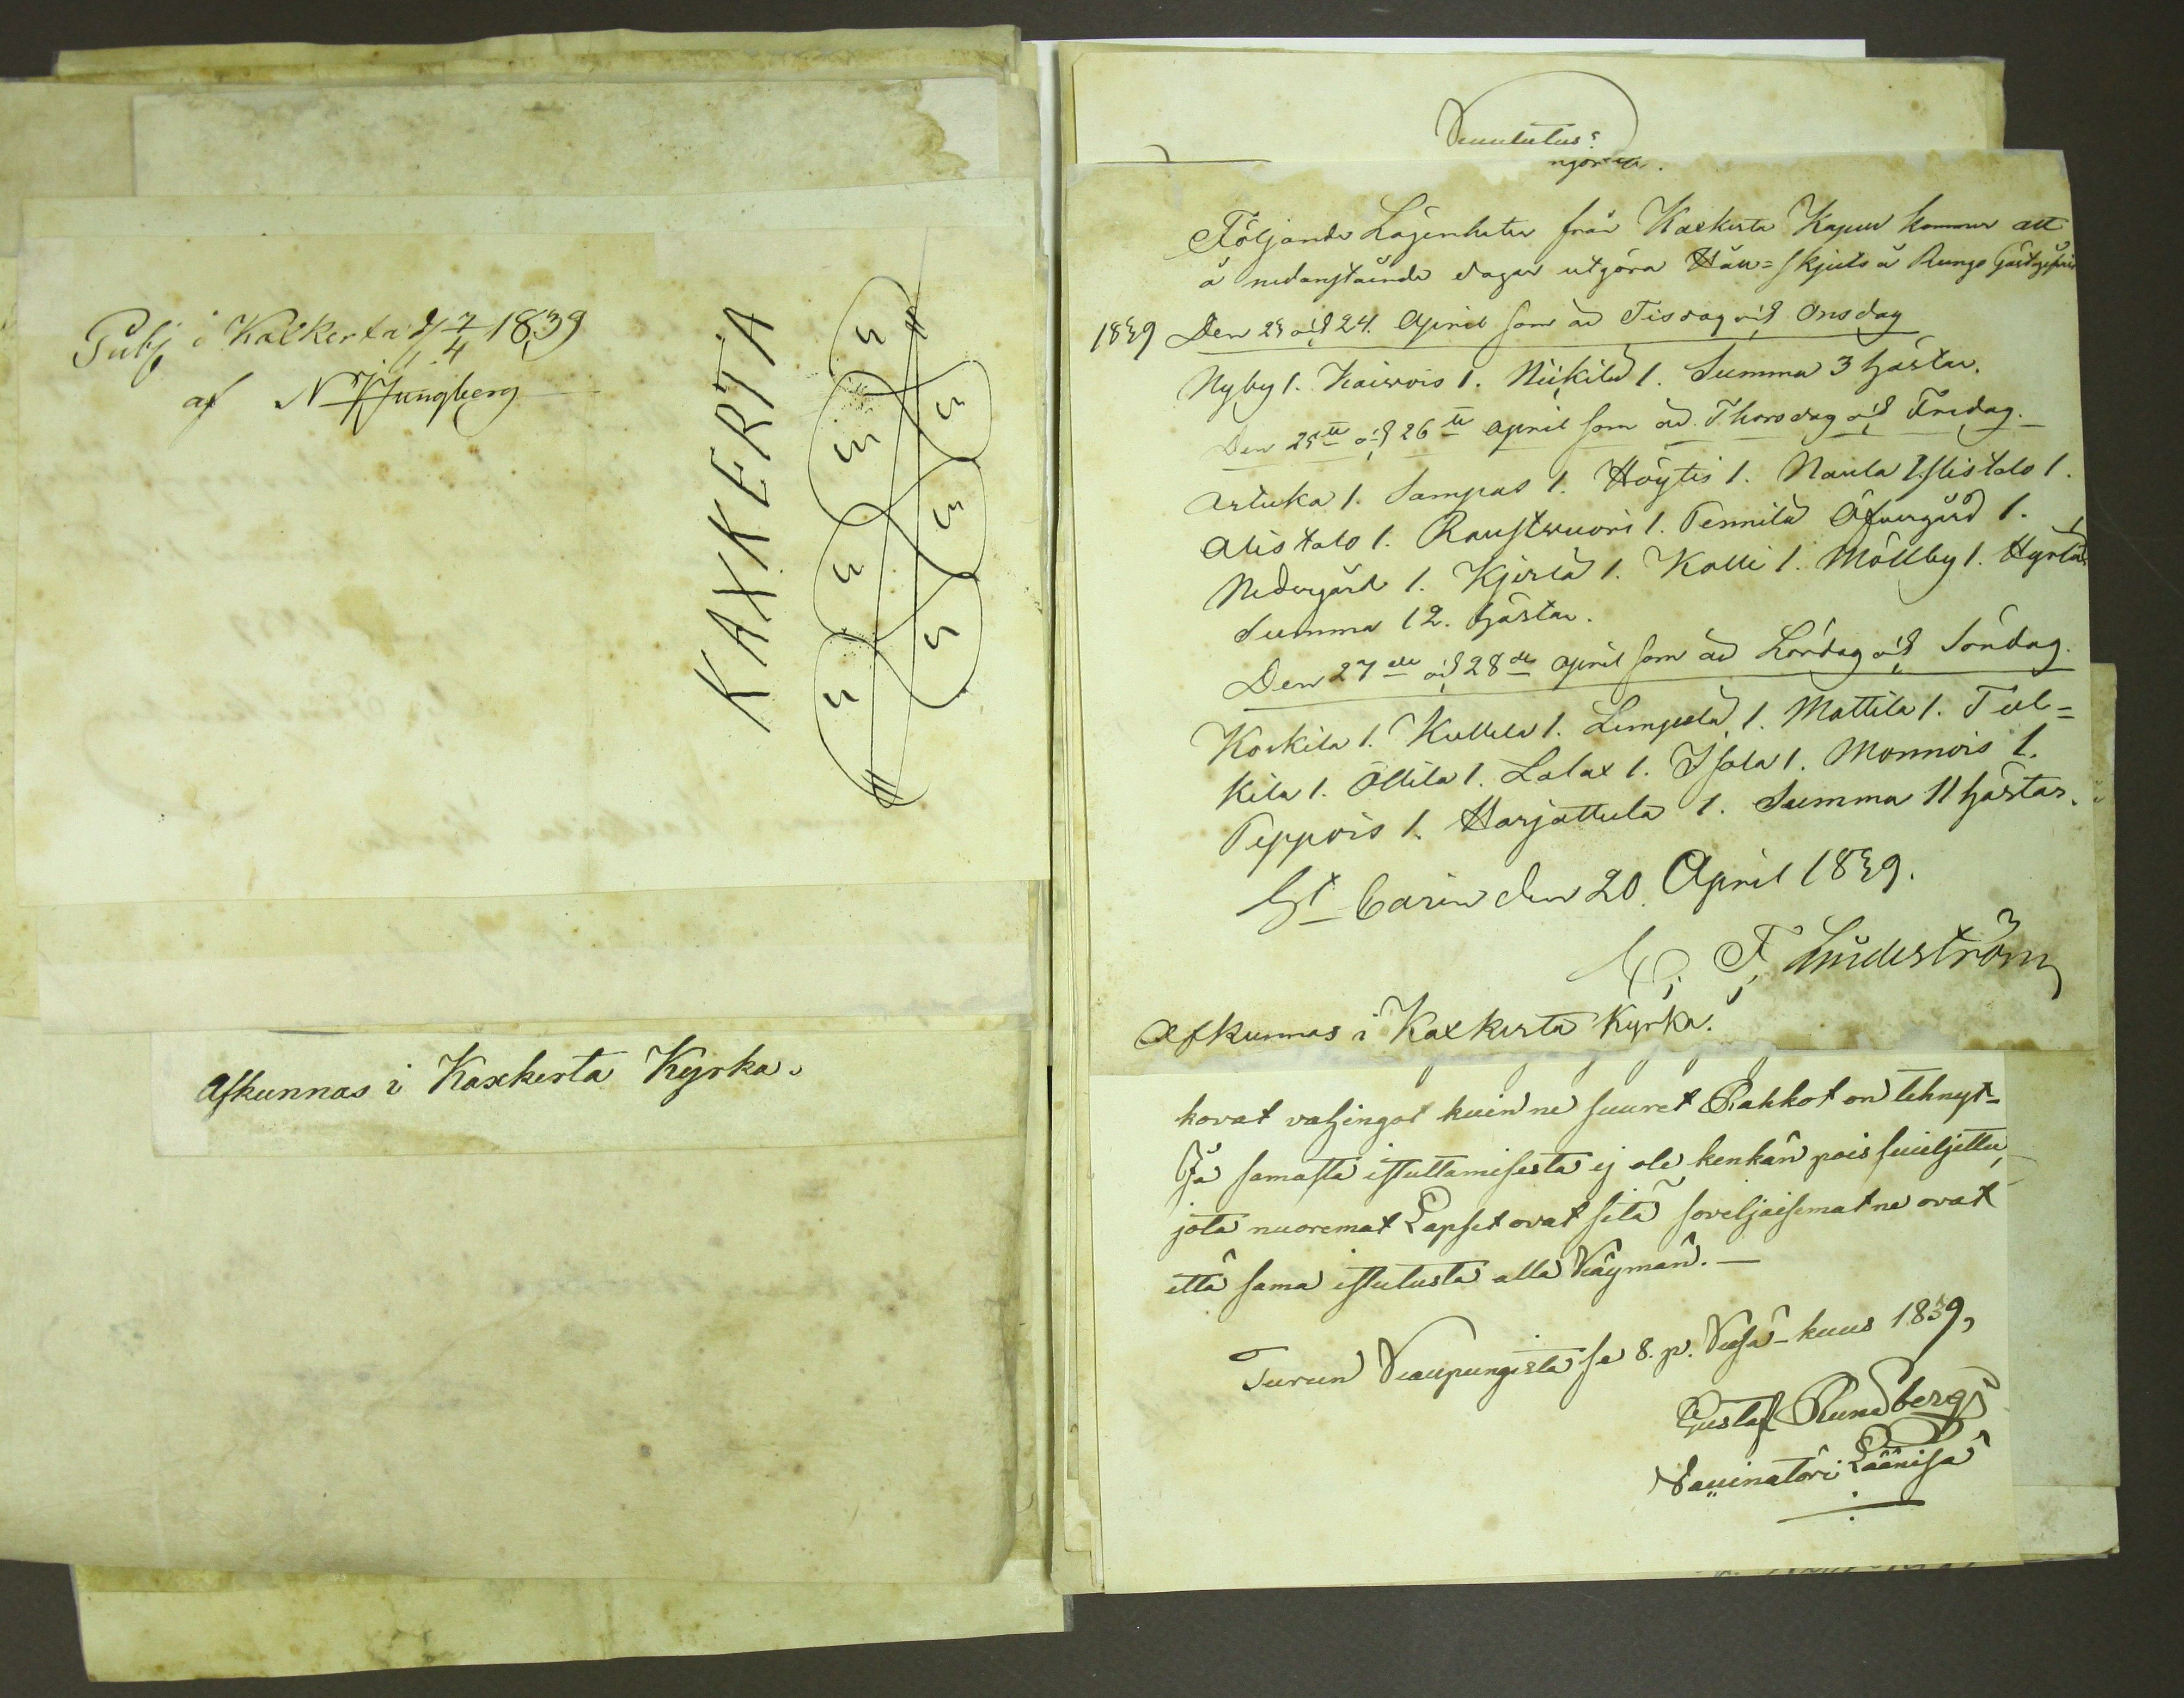 Publ i Kakkerta d 7/4 1839
af N Ljungberg
KAXKERTA
Afkunnas i Kaxkerta Kyrka.
Kuulutus.
Följande Lägenheter från Kaxkerta Kapell kommer att
å nedanstående dagar utgöra Håll=skjuts å Runge Gästgifveri
1839 Den 23 och 24. April som är Tisdag och Onsdag
Nyby 1. Kaisvois 1. Niikilä 1. Summa 3 hästar.
Den 25te och 26te April som är Thorsdag och Fredag.
Artuka 1. Sampas 1. Höytis 1. Naula 1. Ylistalo 1.
Alistalo 1. Raustvuori 1. Pennilä Öfvergård 1.
Nedergård 1. Kjerla 1. Kolli 1. Mällby 1. Hyrlä 1
Summa 12. hästar.
Den 27de och 28de April som är Lördag och Söndag.
Koskila 1. Kullila 1. Lempelä 1. Mattila 1. Tul=
kila 1. Ollila 1. Lalax 1. Isola 1. Monnois 1.
Peppois 1. Harjattula 1. Summa 11 hästar.
St Carin den 20. April 1839.
F. Lindeström
Afkunnas i Kaxkerta Kyrka.
kovat vahingot kuin ne suuret Rakkot on tehnyt-
Ja samasta istuttamisesta ej ole kenkän pois suieljettu,
jota nuoremat Lapset ovat sitä soveljaisemat ne ovat
että sama istutusta alla käymän.—
Turun Kaupungista se 8. p. Kesä-kuus 1839,
Gustaf Rundberg
Vaccinatöri Läänisä